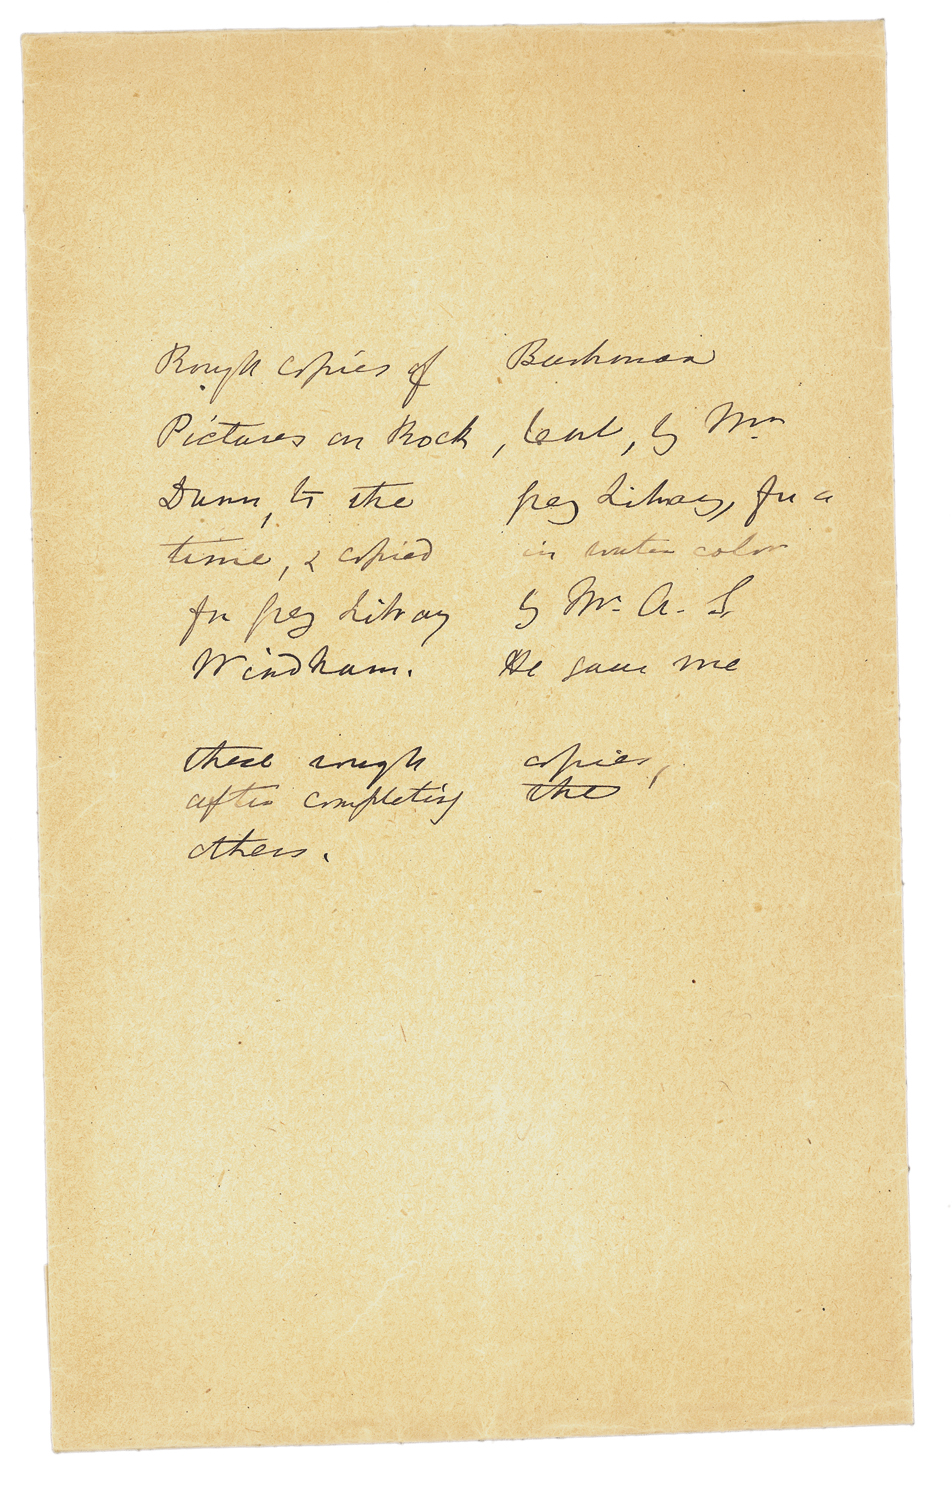 Rough copies of Bushman
Pictures on Rock, lent, by Mrs
Dunn, to the Grey Library, for a
time, & copied in water color
for Grey Library by Mr. A. S.
Windham. He gave me
these rough copies,
after completing the
others.